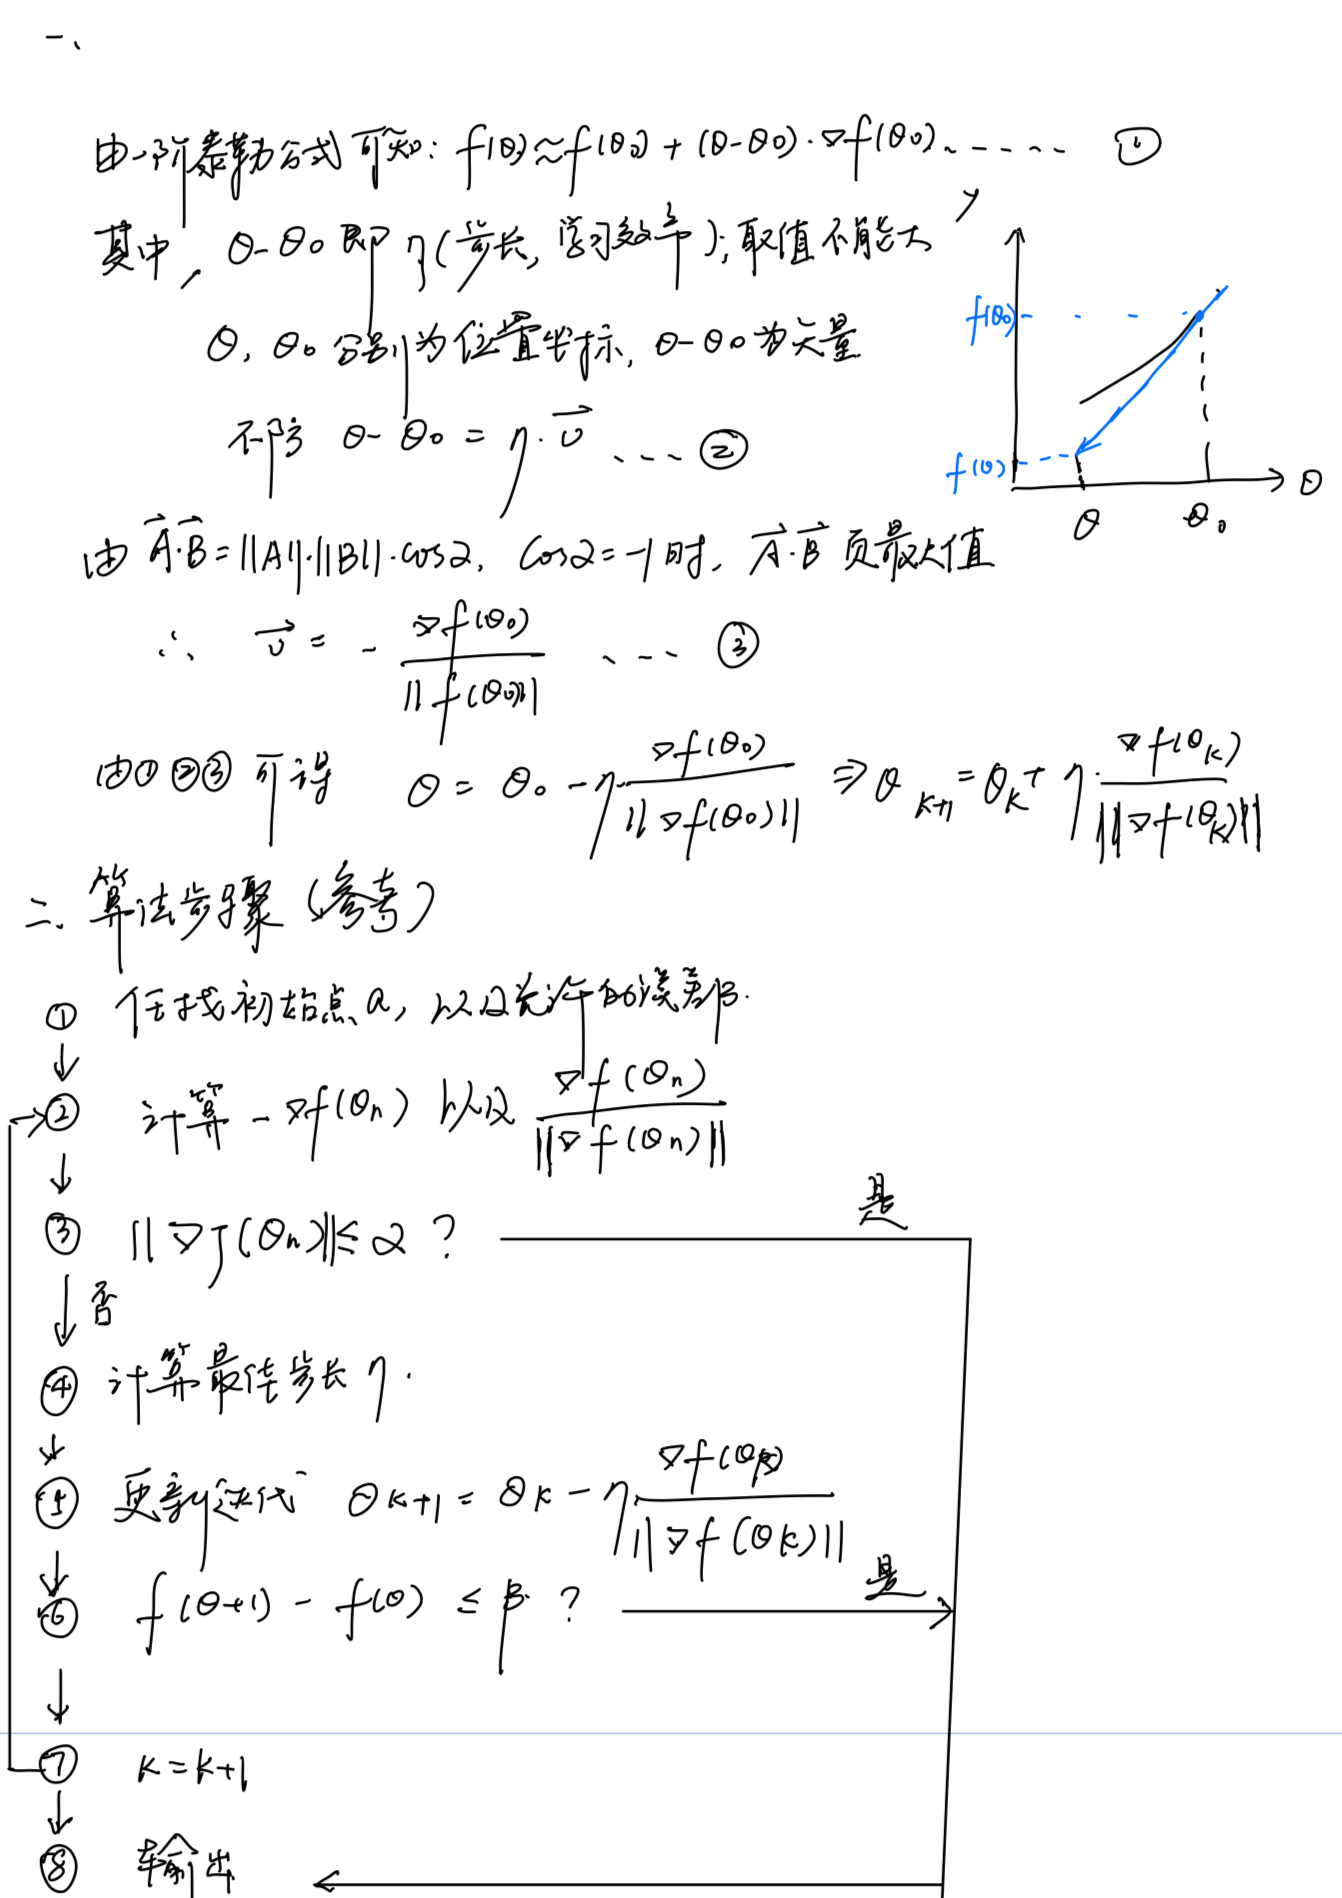 一、
由一阶泰勒公式可知: f(θ)≈f(θ₀)+(θ-θ₀)·∇f(θ₀)...... ①
其中, θ-θ₀即η(步长, 学习效率); 取值不能大
θ, θ₀分别为位置坐标, θ-θ₀为矢量
不防 θ-θ₀ = η·v⃗ .... ②
y
f(θ₀)
f(θ)
θ
θ₀
θ
由 A⃗·B⃗=||A||·||B||·cosα, cosα=-1时, A⃗·B⃗ 负最大值
∴ v⃗ = - ∇f(θ₀) / ||f(θ₀)|| .... ③
由①②③可得 θ = θ₀ - η·∇f(θ₀) / ||∇f(θ₀)|| ⇒ θ_{k+1} = θ_k + η·∇f(θ_k) / ||∇f(θ_k)||
二、算法步骤 (参考)
① 任找初始点a, 以及允许的误差β.
② 计算 -∇f(θn) 以及 ∇f(θn) / ||∇f(θn)||
③ ||∇J(θn)||≤α ? 是
否
④ 计算最佳步长 η.
⑤ 更新迭代 θ_{k+1} = θ_k - η ∇f(θ_k) / ||∇f(θ_k)||
⑥ f(θ+1) - f(θ) ≤ β ? 是
⑦ k=k+1
⑧ 输出